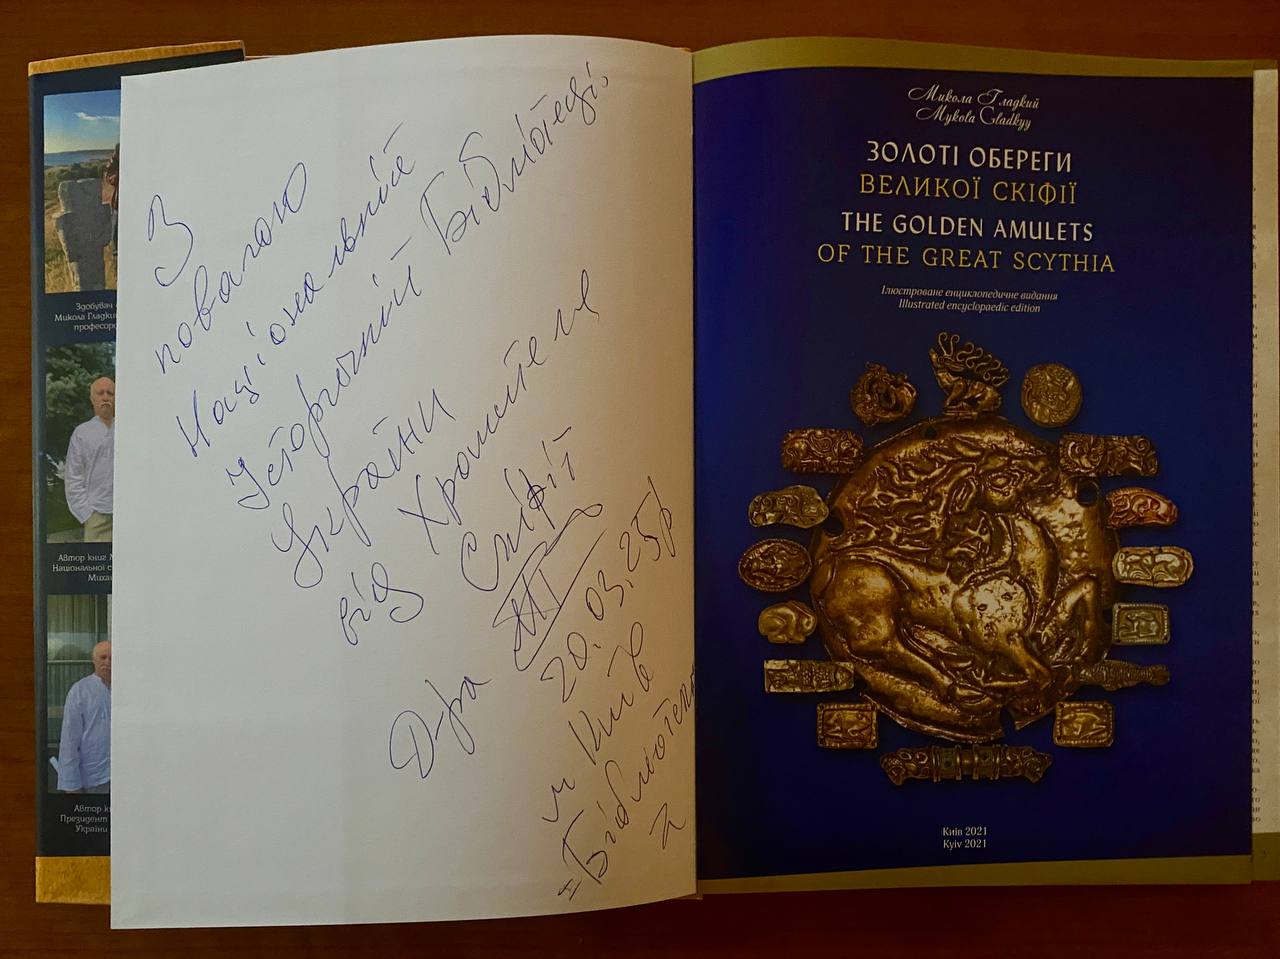 Здобувач
Микола Гладки
професор
Автор книг
Національної с
Миха
Автор кн
Президент
України
З
повагою
Національній
Історичній Бібліотеці
України
від Хранителя
Скіфії
Д-ра
20.03.25р
м Київ
Бібліотека
Микола Гладкий
Mykola Gladkyy
ЗОЛОТІ ОБЕРЕГИ
ВЕЛИКОЇ СКІФІЇ
THE GOLDEN AMULETS
OF THE GREAT SCYTHIA
Ілюстроване енциклопедичне видання
Illustrated encyclopaedic edition
Київ 2021
Kyiv 2021